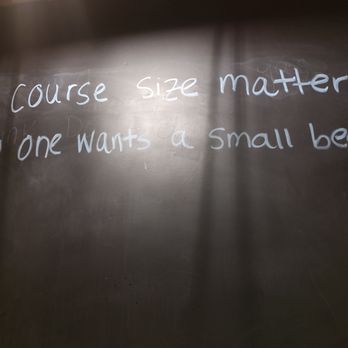 course size matter
one wants a small be